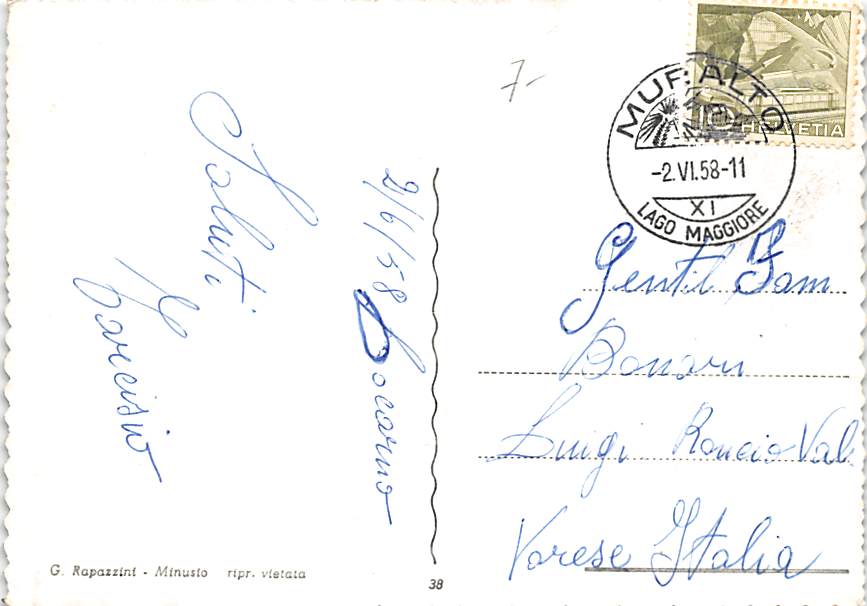 7-
MURALTO
-2.VI.58-11
XI
LAGO MAGGIORE
10
HELVETIA
2/6/58 Locarno
Saluti
Narcisio
Gentil Fam
Bonari
Luigi Roncio Val
Varese Italia
G. Rapazzini - Minusio ripr. vietata
38